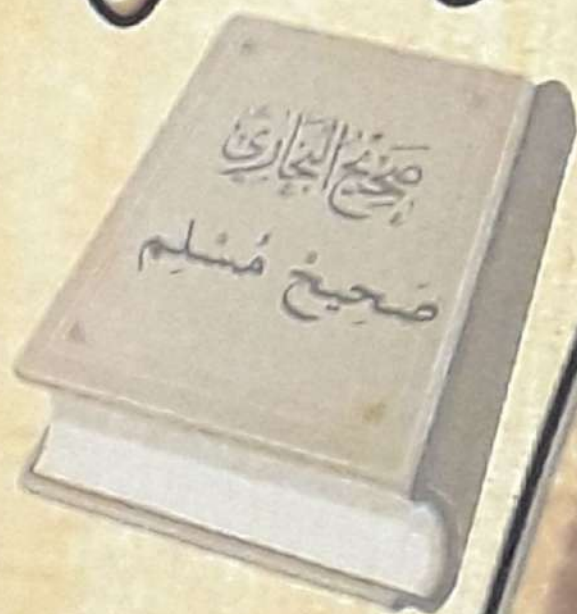 صَحِيْحُ البُخَارِيْ
صَحِيحُ مُسْلِم